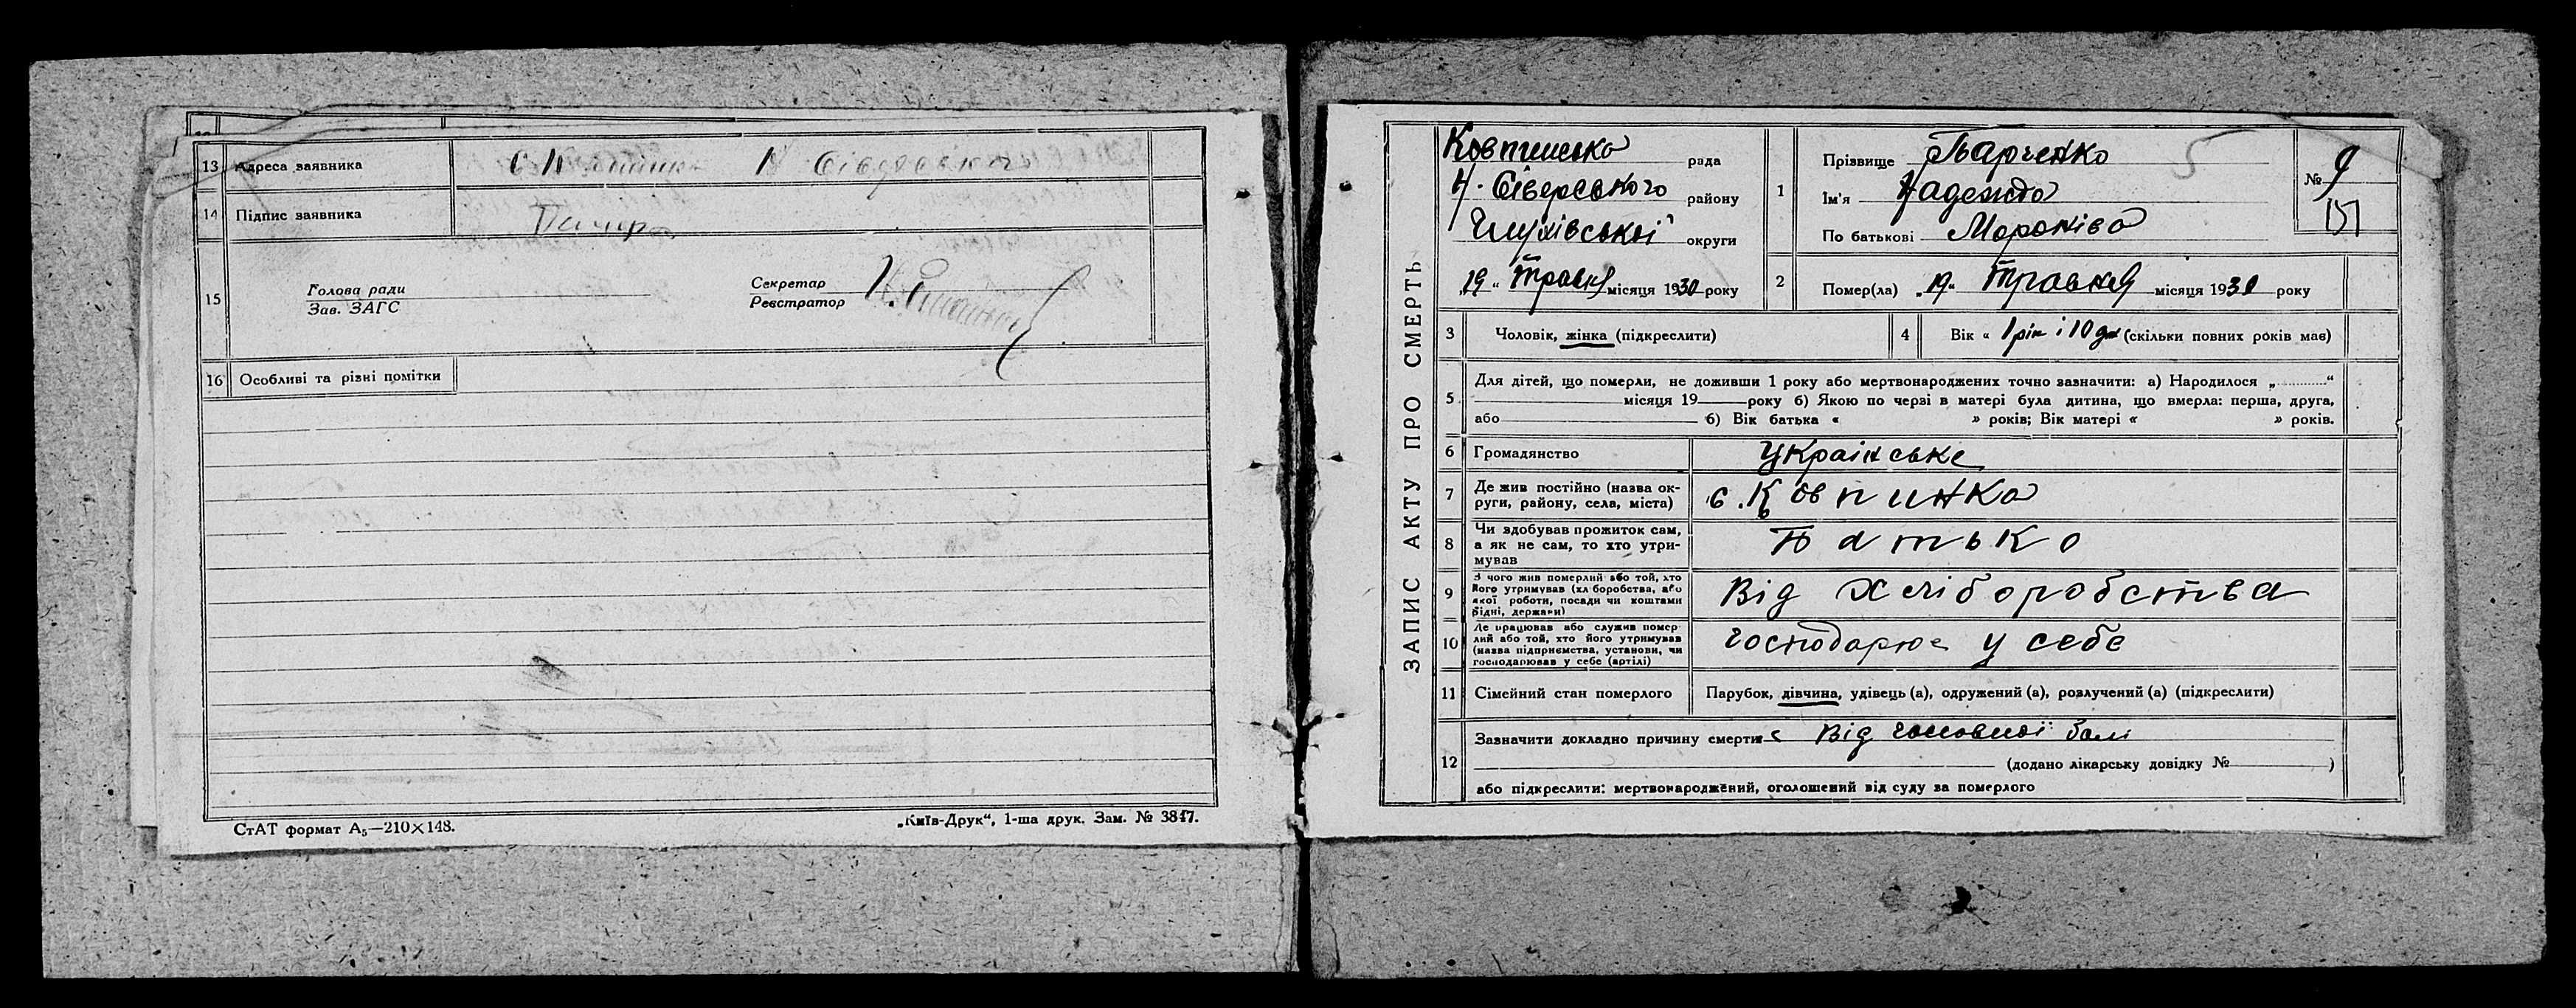 13 Адреса заявника
14 Підпис заявника
15 Голова ради
Зав. ЗАГС
Секретар
Реєстратор
16 Особливі та різні помітки
СтАТ формат А₅—210×148.
„Київ-Друк“, 1-ша друк. Зам. № 3847.
ЗАПИС АКТУ ПРО СМЕРТЬ
Ковпинська рада
Н. Сіверського району
Глухівської округи
„19“ Травня місяця 1930 року
1 Прізвище Харченко
Ім'я Надежда
По батькові Марківа
№ 9
151
5
2 Помер(ла) „19“ Травня місяця 1930 року
3 Чоловік, жінка (підкреслити)
4 Вік « 1 рік і 10 дн (скільки повних років має)
5 Для дітей, що померли, не доживши 1 року або мертвонароджених точно зазначити: а) Народилося „ “
місяця 19 року б) Якою по черзі в матері була дитина, що вмерла: перша, друга,
або б) Вік батька « » років; Вік матері « » років.
6 Громадянство Українське
7 Де жив постійно (назва ок-
руги, району, села, міста) с. Ковпинка
8 Чи здобував прожиток сам,
а як не сам, то хто утри-
мував Батько
9 З чого жив померлий або той, хто
його утримував (хліборобства, або
якої роботи, посади чи коштами
рідні, держави) Від хліборобства
10 Де працював або служив помер-
лий або той, хто його утримував
(назва підприємства, установи, чи
господарював у себе (артілі) господарює у себе
11 Сімейний стан померлого Парубок, дівчина, удівець (а), одружений (а), розлучений (а) (підкреслити)
12 Зазначити докладно причину смерти Від головної болі
(додано лікарську довідку № )
або підкреслити: мертвонароджений, оголошений від суду за померлого